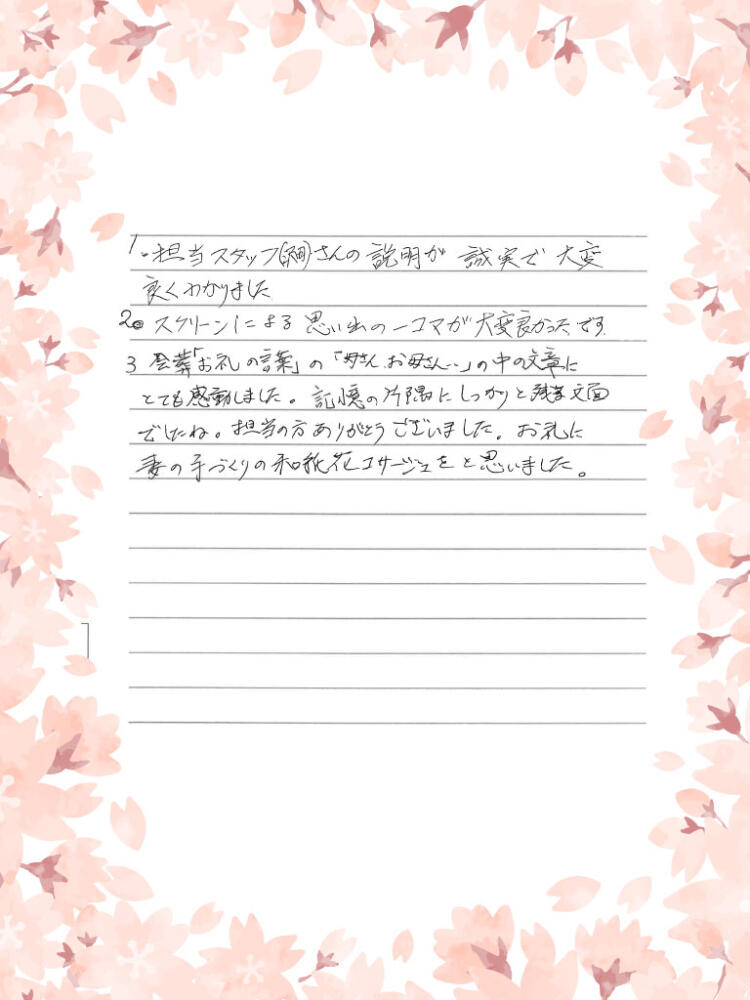 1. 担当スタッフ()さんの説明が 誠実で 大変
良くわかりました
2. スクリーンによる 思い出の一コマが大変良かったです
3 会葬「お礼の言葉」の「母さん、お母さん・・」の中の文章に
とても感動しました。記憶の片隅にしっかりと残る文面
でしたね。担当の方ありがとうございました。お礼に
妻の手づくりの和紙花コサージュをと思いました。